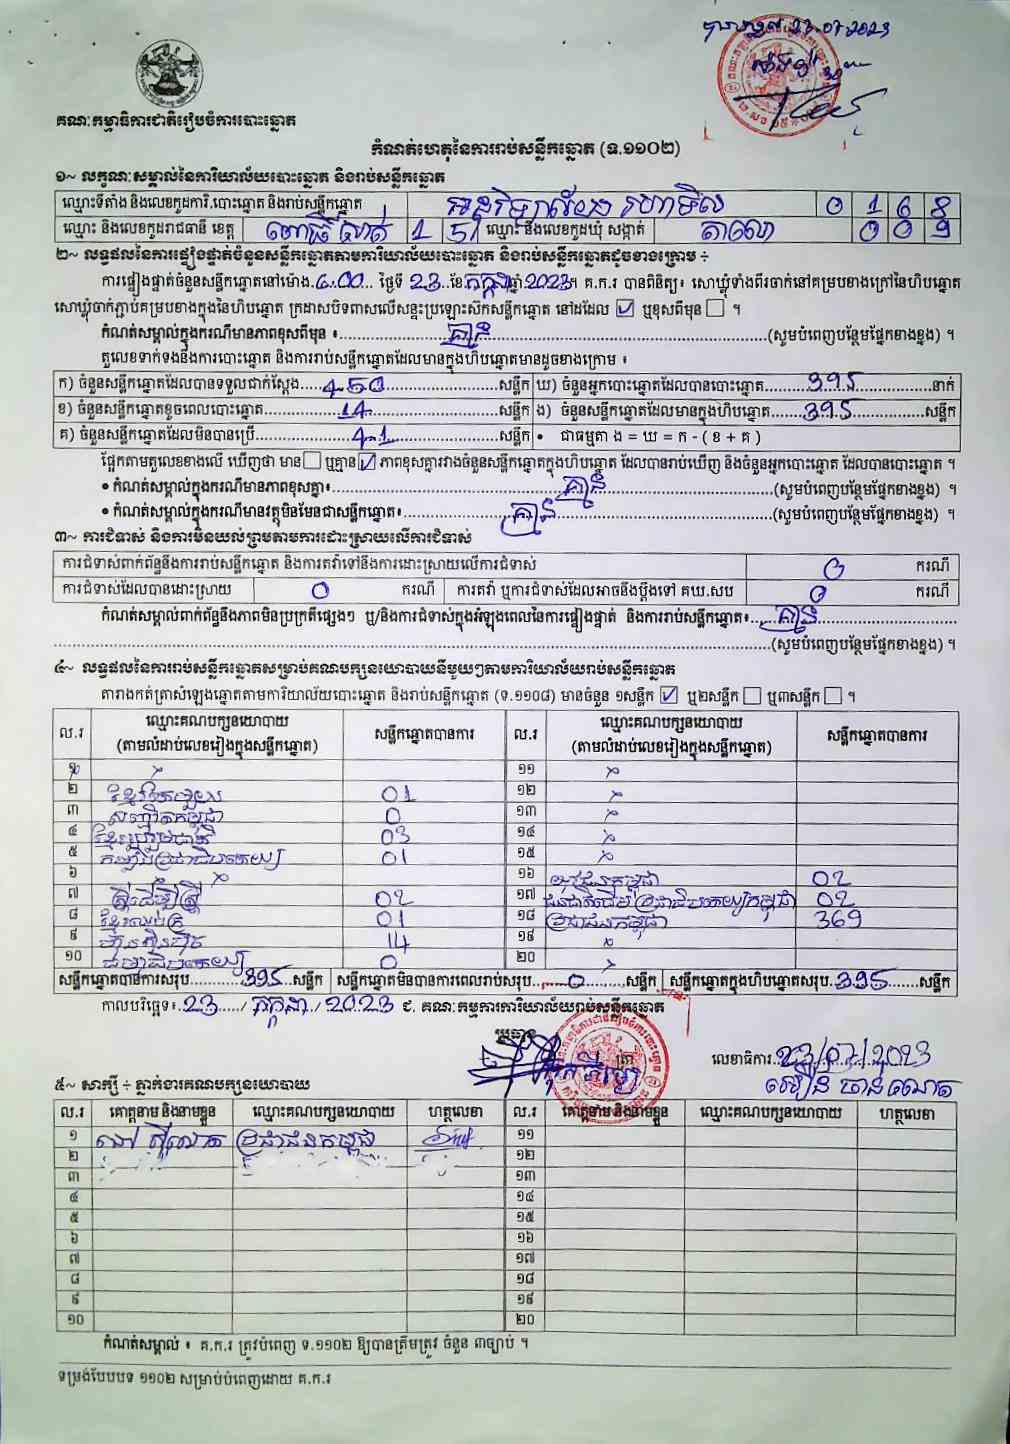 23-07-2023
គណៈកម្មាធិការជាតិរៀបចំការបោះឆ្នោត
កំណត់ហេតុនៃការរាប់សន្លឹកឆ្នោត (ទ.១១០២)
១~ លក្ខណៈសម្គាល់នៃការិយាល័យបោះឆ្នោត និងរាប់សន្លឹកឆ្នោត
ឈ្មោះទីតាំង និងលេខកូដការិ.បោះឆ្នោត និងរាប់សន្លឹកឆ្នោត 0 1 6 8
ឈ្មោះ និងលេខកូដរាជធានី ខេត្ត ពោធិ៍សាត់ 1 5 ឈ្មោះ និងលេខកូដឃុំ សង្កាត់ តាលោ 0 0 9
២~ លទ្ធផលនៃការផ្ទៀងផ្ទាត់ចំនួនសន្លឹកឆ្នោតតាមការិយាល័យបោះឆ្នោត និងរាប់សន្លឹកឆ្នោតដូចខាងក្រោម ÷
ការផ្ទៀងផ្ទាត់ចំនួនសន្លឹកឆ្នោតនៅម៉ោង ថ្ងៃទី 23 ខែ កក្កដា ឆ្នាំ 2023 ។ គ.ក.រ បានពិនិត្យ៖ សោឃ្លុំទាំងពីរចាក់នៅគម្របខាងក្រៅនៃហិបឆ្នោត
សោឃ្លុំចាក់ភ្ជាប់គម្របខាងក្នុងនៃហិបឆ្នោត ក្រដាសបិទពាសលើសន្ទះប្រឡោះស៊កសន្លឹកឆ្នោត នៅដដែល ☑ ឬខុសពីមុន ☐ ។
កំណត់សម្គាល់ក្នុងករណីមានភាពខុសពីមុន ៖ គ្មាន (សូមបំពេញបន្ថែមផ្នែកខាងខ្នង) ។
តួលេខទាក់ទងនឹងការបោះឆ្នោត និងការរាប់សន្លឹកឆ្នោតដែលមានក្នុងហិបឆ្នោតមានដូចខាងក្រោម ៖
ក) ចំនួនសន្លឹកឆ្នោតដែលបានទទួលជាក់ស្តែង 450 សន្លឹក ឃ) ចំនួនអ្នកបោះឆ្នោតដែលបានបោះឆ្នោត 395 នាក់
ខ) ចំនួនសន្លឹកឆ្នោតខូចពេលបោះឆ្នោត 14 សន្លឹក ង) ចំនួនសន្លឹកឆ្នោតដែលមានក្នុងហិបឆ្នោត 395 សន្លឹក
គ) ចំនួនសន្លឹកឆ្នោតដែលមិនបានប្រើ 41 សន្លឹក • ជាធម្មតា ង = ឃ = ក - ( ខ + គ )
ផ្អែកតាមតួលេខខាងលើ ឃើញថា មាន ☐ ឬគ្មាន ☑ ភាពខុសគ្នារវាងចំនួនសន្លឹកឆ្នោតក្នុងហិបឆ្នោត ដែលបានរាប់ឃើញ និងចំនួនអ្នកបោះឆ្នោត ដែលបានបោះឆ្នោត ។
• កំណត់សម្គាល់ក្នុងករណីមានភាពខុសគ្នា៖ គ្មាន (សូមបំពេញបន្ថែមផ្នែកខាងខ្នង) ។
• កំណត់សម្គាល់ក្នុងករណីមានវត្ថុមិនមែនជាសន្លឹកឆ្នោត៖ គ្មាន (សូមបំពេញបន្ថែមផ្នែកខាងខ្នង) ។
៣~ ការជំទាស់ និងការមិនយល់ព្រមតាមការដោះស្រាយលើការជំទាស់
ការជំទាស់ពាក់ព័ន្ធនឹងការរាប់សន្លឹកឆ្នោត និងការតវ៉ាទៅនឹងការដោះស្រាយលើការជំទាស់ 0 ករណី
ការជំទាស់ដែលបានដោះស្រាយ 0 ករណី ការតវ៉ា ឬការជំទាស់ដែលអាចនឹងប្តឹងទៅ គឃ.សប 0 ករណី
កំណត់សម្គាល់ពាក់ព័ន្ធនឹងភាពមិនប្រក្រតីផ្សេងៗ ឬ/និងការជំទាស់ក្នុងអំឡុងពេលនៃការផ្ទៀងផ្ទាត់ និងការរាប់សន្លឹកឆ្នោត៖ គ្មាន
(សូមបំពេញបន្ថែមផ្នែកខាងខ្នង) ។
៤~ លទ្ធផលនៃការរាប់សន្លឹកឆ្នោតសម្រាប់គណបក្សនយោបាយនីមួយៗតាមការិយាល័យរាប់សន្លឹកឆ្នោត
តារាងកត់ត្រាសំឡេងឆ្នោតតាមការិយាល័យបោះឆ្នោត និងរាប់សន្លឹកឆ្នោត (ទ.១១០៨) មានចំនួន ១សន្លឹក ☑ ឬ២សន្លឹក ☐ ឬ៣សន្លឹក ☐ ។
ល.រ ឈ្មោះគណបក្សនយោបាយ (តាមលំដាប់លេខរៀងក្នុងសន្លឹកឆ្នោត) សន្លឹកឆ្នោតបានការ ល.រ ឈ្មោះគណបក្សនយោបាយ (តាមលំដាប់លេខរៀងក្នុងសន្លឹកឆ្នោត) សន្លឹកឆ្នោតបានការ
១ × ១១ ×
២ ខ្មែរតែមួយ 01 ១២ ×
៣ សញ្ជាតិកម្ពុជា 0 ១៣ ×
៤ ខ្មែររួបរួមជាតិ 03 ១៤ ×
៥ កម្លាំងប្រជាធិបតេយ្យ 01 ១៥ ×
៦ × ១៦ យុវជនកម្ពុជា 02
៧ ស្ត្រីដើម្បីស្ត្រី 02 ១៧ ជនជាតិដើមប្រជាធិបតេយ្យកម្ពុជា 02
៨ ខ្មែរឈប់ក្រ 01 ១៨ ប្រជាជនកម្ពុជា 369
៩ ហ៊្វុនស៊ិនប៉ិច 14 ១៩ ×
១០ ធម្មាធិបតេយ្យ 0 ២០ ×
សន្លឹកឆ្នោតបានការសរុប 395 សន្លឹក សន្លឹកឆ្នោតមិនបានការពេលរាប់សរុប 0 សន្លឹក សន្លឹកឆ្នោតក្នុងហិបឆ្នោតសរុប 395 សន្លឹក
កាលបរិច្ឆេទ៖ 23 / កក្កដា / 2023 ៩. គណៈកម្មការការិយាល័យរាប់សន្លឹកឆ្នោត
ប្រធាន
លេខាធិការ 23/07/2023
៥~ សាក្សី ÷ ភ្នាក់ងារគណបក្សនយោបាយ
ល.រ គោត្តនាម និងនាមខ្លួន ឈ្មោះគណបក្សនយោបាយ ហត្ថលេខា ល.រ គោត្តនាម និងនាមខ្លួន ឈ្មោះគណបក្សនយោបាយ ហត្ថលេខា
១ ប្រជាជនកម្ពុជា ១១
២ ១២
៣ ១៣
៤ ១៤
៥ ១៥
៦ ១៦
៧ ១៧
៨ ១៨
៩ ១៩
១០ ២០
កំណត់សម្គាល់ ៖ គ.ក.រ ត្រូវបំពេញ ទ.១១០២ ឱ្យបានត្រឹមត្រូវ ចំនួន ៣ច្បាប់ ។
ទម្រង់បែបបទ ១១០២ សម្រាប់បំពេញដោយ គ.ក.រ